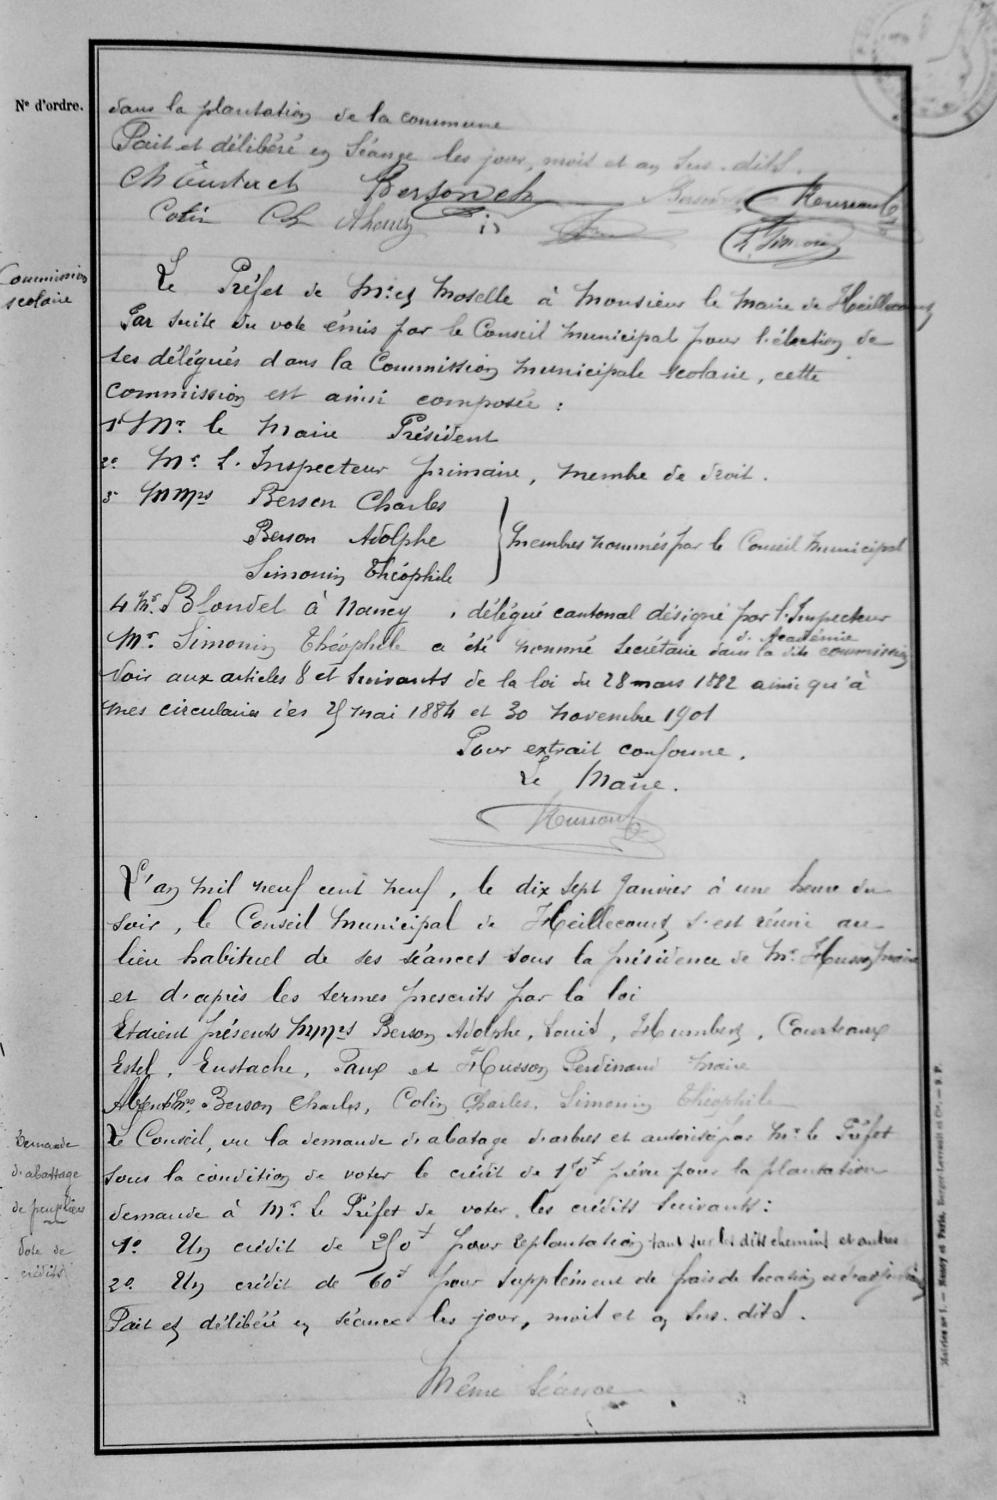 N° d'ordre.
dans la plantation de la commune
Fait et délibéré en Séance les jour, mois et an sus-dits.
Ch Eustach Berson ch
Colin Ch
T. Simonin
Commission
scolaire
Le Préfet de M. et Moselle à Monsieur le Maire de Heillecourt
Par suite du vote émis par le Conseil municipal pour l'élection de
ses délégués dans la Commission municipale scolaire, cette
commission est ainsi composée :
1° Mr. le Maire Président
2° Mr. L'Inspecteur primaire, membre de droit.
3° MMrs Berson Charles
Berson Adolphe
Simonin Théophile
Membres nommés par le Conseil Municipal
4° Mr. Blondel à Nancy, délégué cantonal désigné par l'Inspecteur
d'Académie
Mr. Simonin Théophile a été nommé Secrétaire dans la dite commission
Voir aux articles 8 et suivants de la loi du 28 mars 1882 ainsi qu'à
mes circulaires des mai 1884 et 30 novembre 1901
Pour extrait conforme.
Le Maire.
L'an mil neuf cent neuf, le dix sept Janvier à une heure du
soir, le Conseil Municipal de Heillecourt s'est réuni au
lieu habituel de ses séances sous la présidence de Mr. Husson maire
et d'après les termes prescrits par la loi
Etaient présents MMrs Berson Adolphe, Louis, Humbert, Courteaux
Estel, Eustache, Paux et Husson Ferdinand Maire
Absents Mrs Berson Charles, Colin Charles, Simonin Théophile
Demande
d'abattage
de peupliers
Vote de
crédits
Le Conseil, vu la demande d'abatage d'arbres et autorisé par Mr. le Préfet
sous la condition de voter le crédit de 150f prévu pour la plantation
demande à Mr. Le Préfet de voter les crédits suivants :
1° Un crédit de 250f pour replantation tant sur les dits chemins et autres
2° Un crédit de 60f pour supplément de frais de location
Fait et délibéré en séance les jour, mois et an sus-dits.
Même Séance
Mairies n° 1. — Nancy et Paris, Berger-Levrault et Cie. — S. P.